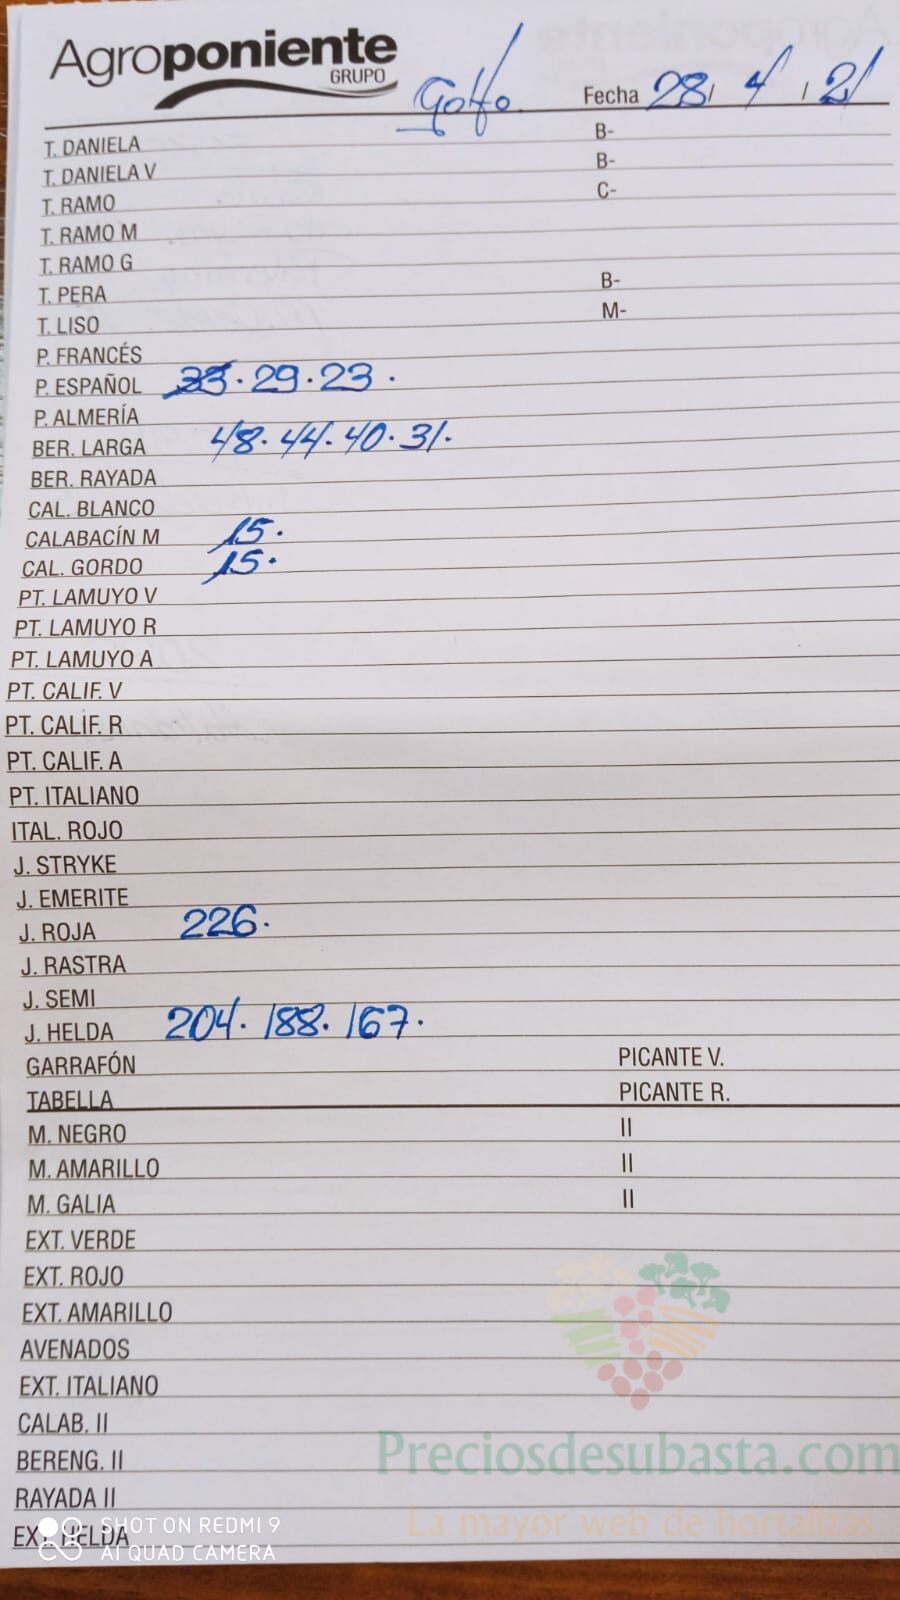 Agroponiente
GRUPO
Golfo. Fecha 28/ 4 / 21
T. DANIELA B-
T. DANIELA V B-
T. RAMO C-
T. RAMO M
T. RAMO G
T. PERA B-
T. LISO M-
P. FRANCÉS
P. ESPAÑOL 33.29.23.
P. ALMERÍA
BER. LARGA 48.44.40.31.
BER. RAYADA
CAL. BLANCO
CALABACÍN M 15.
CAL. GORDO 15.
PT. LAMUYO V
PT. LAMUYO R
PT. LAMUYO A
PT. CALIF. V
PT. CALIF. R
PT. CALIF. A
PT. ITALIANO
ITAL. ROJO
J. STRYKE
J. EMERITE
J. ROJA 226.
J. RASTRA
J. SEMI
J. HELDA 204. 188. 167.
GARRAFÓN PICANTE V.
TABELLA PICANTE R.
M. NEGRO II
M. AMARILLO II
M. GALIA II
EXT. VERDE
EXT. ROJO
EXT. AMARILLO
AVENADOS
EXT. ITALIANO
CALAB. II
BERENG. II
Preciosdesubasta.com
RAYADA II
La mayor web de hortalizas
EXT. HELDA
SHOT ON REDMI 9
AI QUAD CAMERA